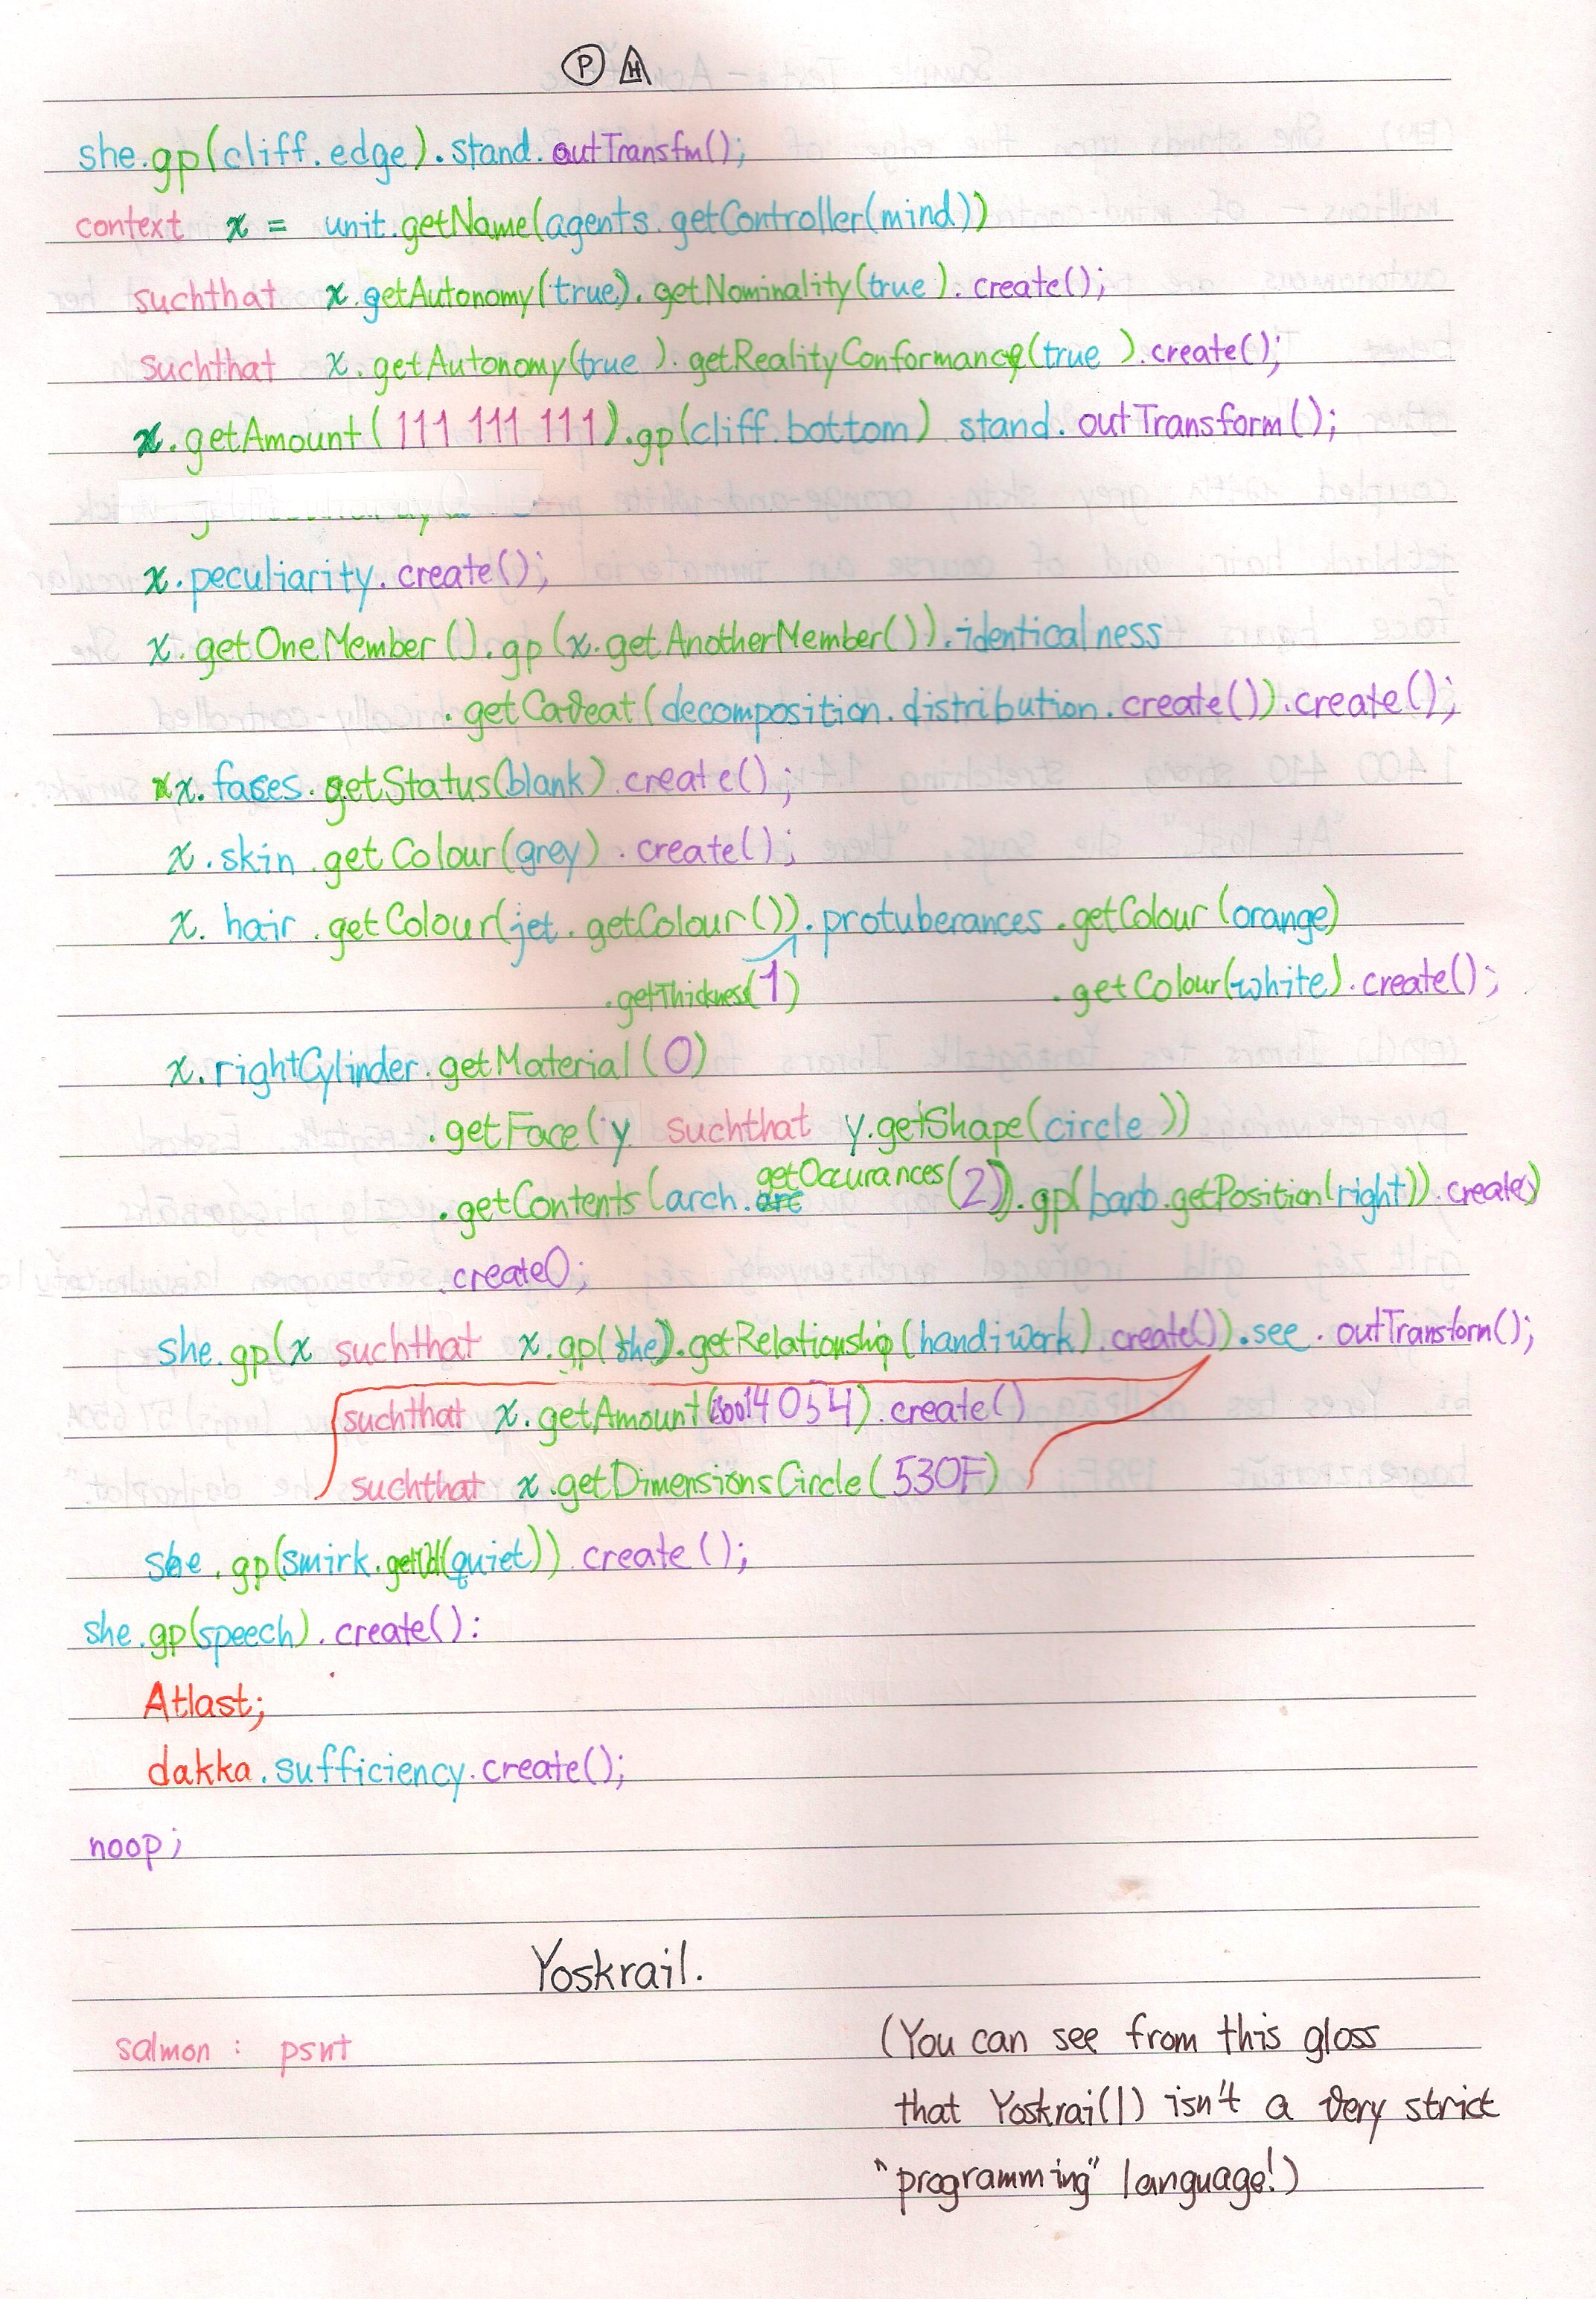 P H
she.gp(cliff.edge).stand.outTransfm();
context x = unit.getName(agents.getController(mind))
suchthat x.getAutonomy(true).getNominality(true).create();
suchthat x.getAutonomy(true).getRealityConformance(true).create();
x.getAmount(111 111 111).gp(cliff.bottom) stand.outTransform();
x.peculiarity.create();
x.getOneMember().gp(x.getAnotherMember()).identicalness
.getCaveat(decomposition.distribution.create()).create();
x.faces.getStatus(blank).create();
x.skin.getColour(grey).create();
x.hair.getColour(jet.getColour()).protuberances.getColour(orange)
.getThickness(1) .getColour(white).create();
x.rightCylinder.getMaterial(0)
.getFace(y suchthat y.getShape(circle))
.getContents(arch.getOccurances(2)).gp(barb.getPosition(right)).create()
.create();
she.gp(x suchthat x.gp(she).getRelationship(handiwork).create()).see.outTransform();
suchthat x.getAmount( 14054).create()
suchthat x.getDimensionsCircle(530F)
she.gp(smirk. (quiet)).create();
she.gp(speech).create():
Atlast;
dakka.sufficiency.create();
noop;
Yoskrail.
salmon: psnt
(You can see from this gloss
that Yoskrai(l) isn't a very strict
"programming" language!)